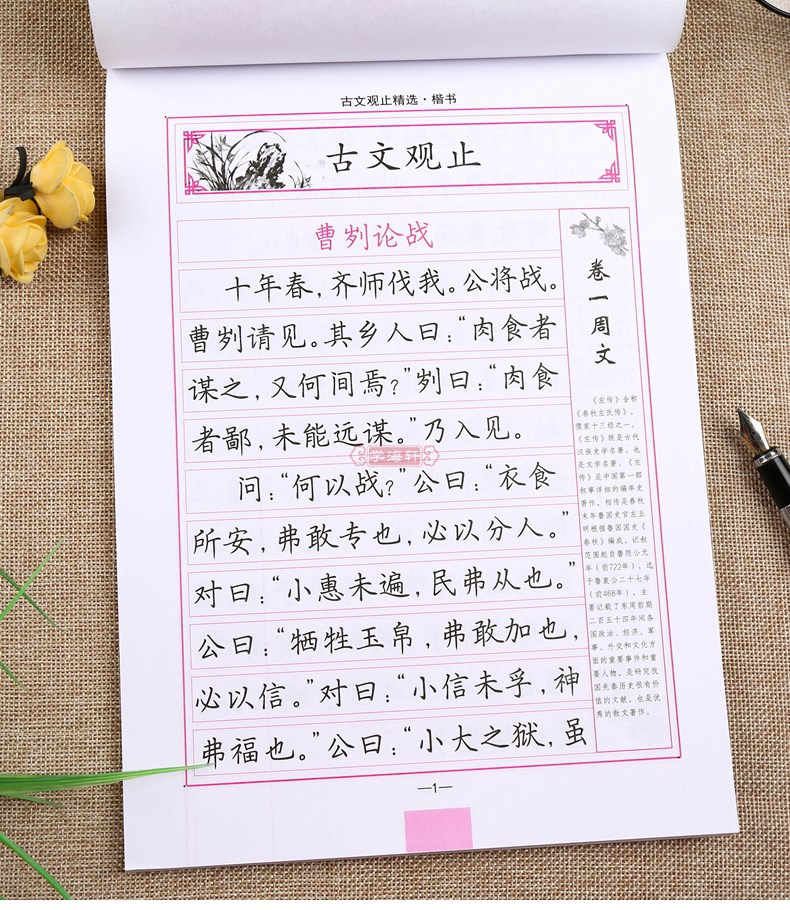 古文观止精选·楷书
古文观止
曹刿论战
十年春,齐师伐我。公将战。
曹刿请见。其乡人曰:“肉食者
谋之,又何间焉?”刿曰:“肉食
者鄙,未能远谋。”乃入见。
问:“何以战?”公曰:“衣食
所安,弗敢专也,必以分人。”
对曰:“小惠未遍,民弗从也。”
公曰:“牺牲玉帛,弗敢加也,
必以信。”对曰:“小信未孚,神
弗福也。”公曰:“小大之狱,虽
卷一周文
《左传》全称
《春秋左氏传》,
儒家十三经之一。
《左传》既是古代
汉族史学名著,也
是文学名著。《左
传》是中国第一部
叙事详细的编年史
著作,相传是春秋
末年鲁国史官左丘
明根据鲁国国史《
春秋》编成,记叙
范围起自鲁隐公元
年(前722年),迄
于鲁哀公二十七年
(前468年),主
要记载了东周前期
二百五十四年间各
国政治、经济、军
事、外交和文化方
面的重要事件和重
要人物,是研究我
国先秦历史很有价
值的文献,也是优
秀的散文著作。
学海轩
—1—